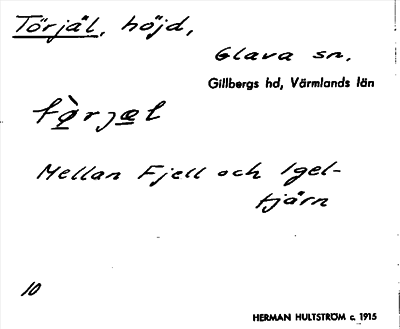 Törjäl, höjd,
Glava sn,
Gillbergs hd, Värmlands län
Mellan Fjell och Igel-
tjärn
10
HERMAN HULTSTRÖM c. 1915